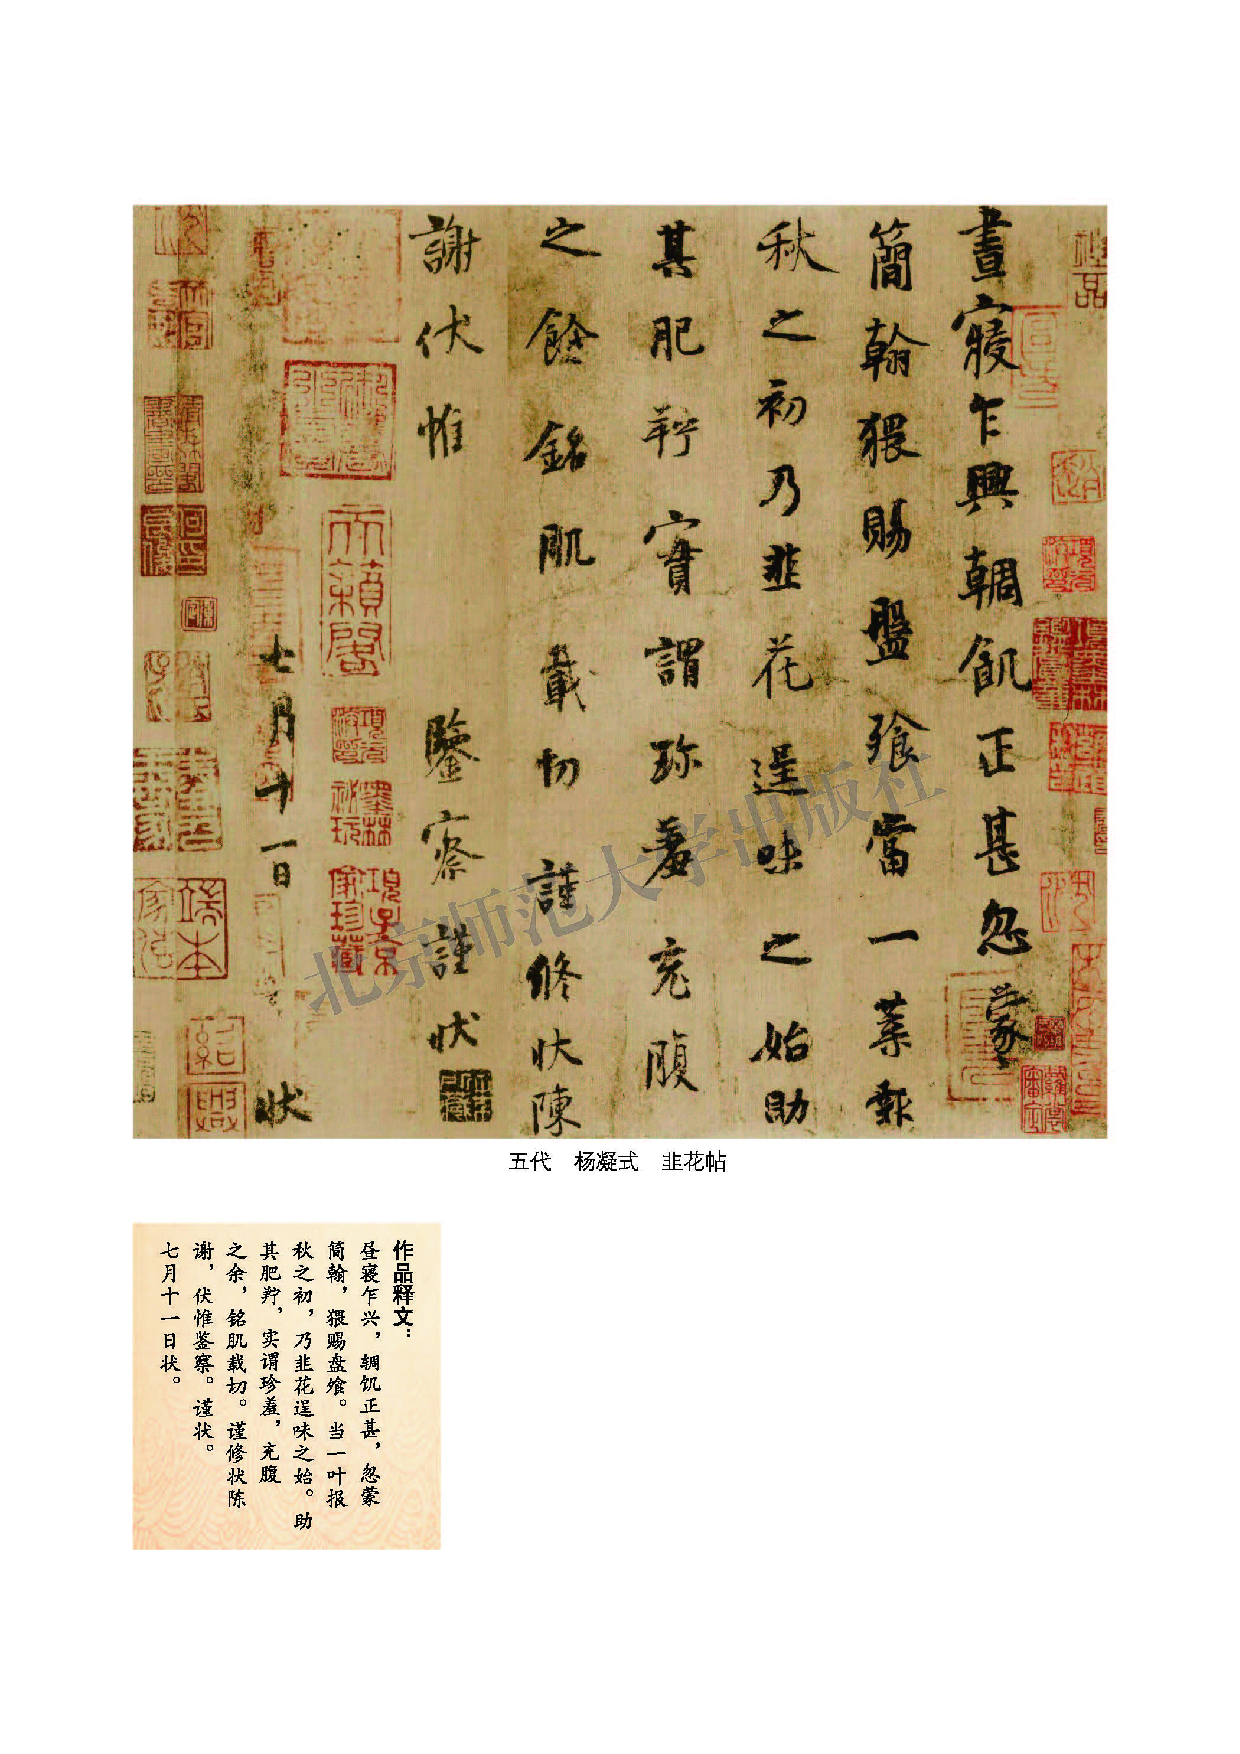 晝寢乍興輖飢正甚忽蒙
簡翰猥賜盤飧當一葉報
秋之初乃韭花逞味之始助
其肥羜實謂珍羞充腹
之餘銘肌載切謹修狀陳
謝伏惟鑒察謹狀
七月十一日狀
北京师范大学出版社
五代 杨凝式 韭花帖
作品释文：
昼寝乍兴，輖饥正甚，忽蒙
简翰，猥赐盘飧。当一叶报
秋之初，乃韭花逞味之始。助
其肥羜，实谓珍羞，充腹
之余，铭肌载切。谨修状陈
谢，伏惟鉴察。谨状。
七月十一日状。